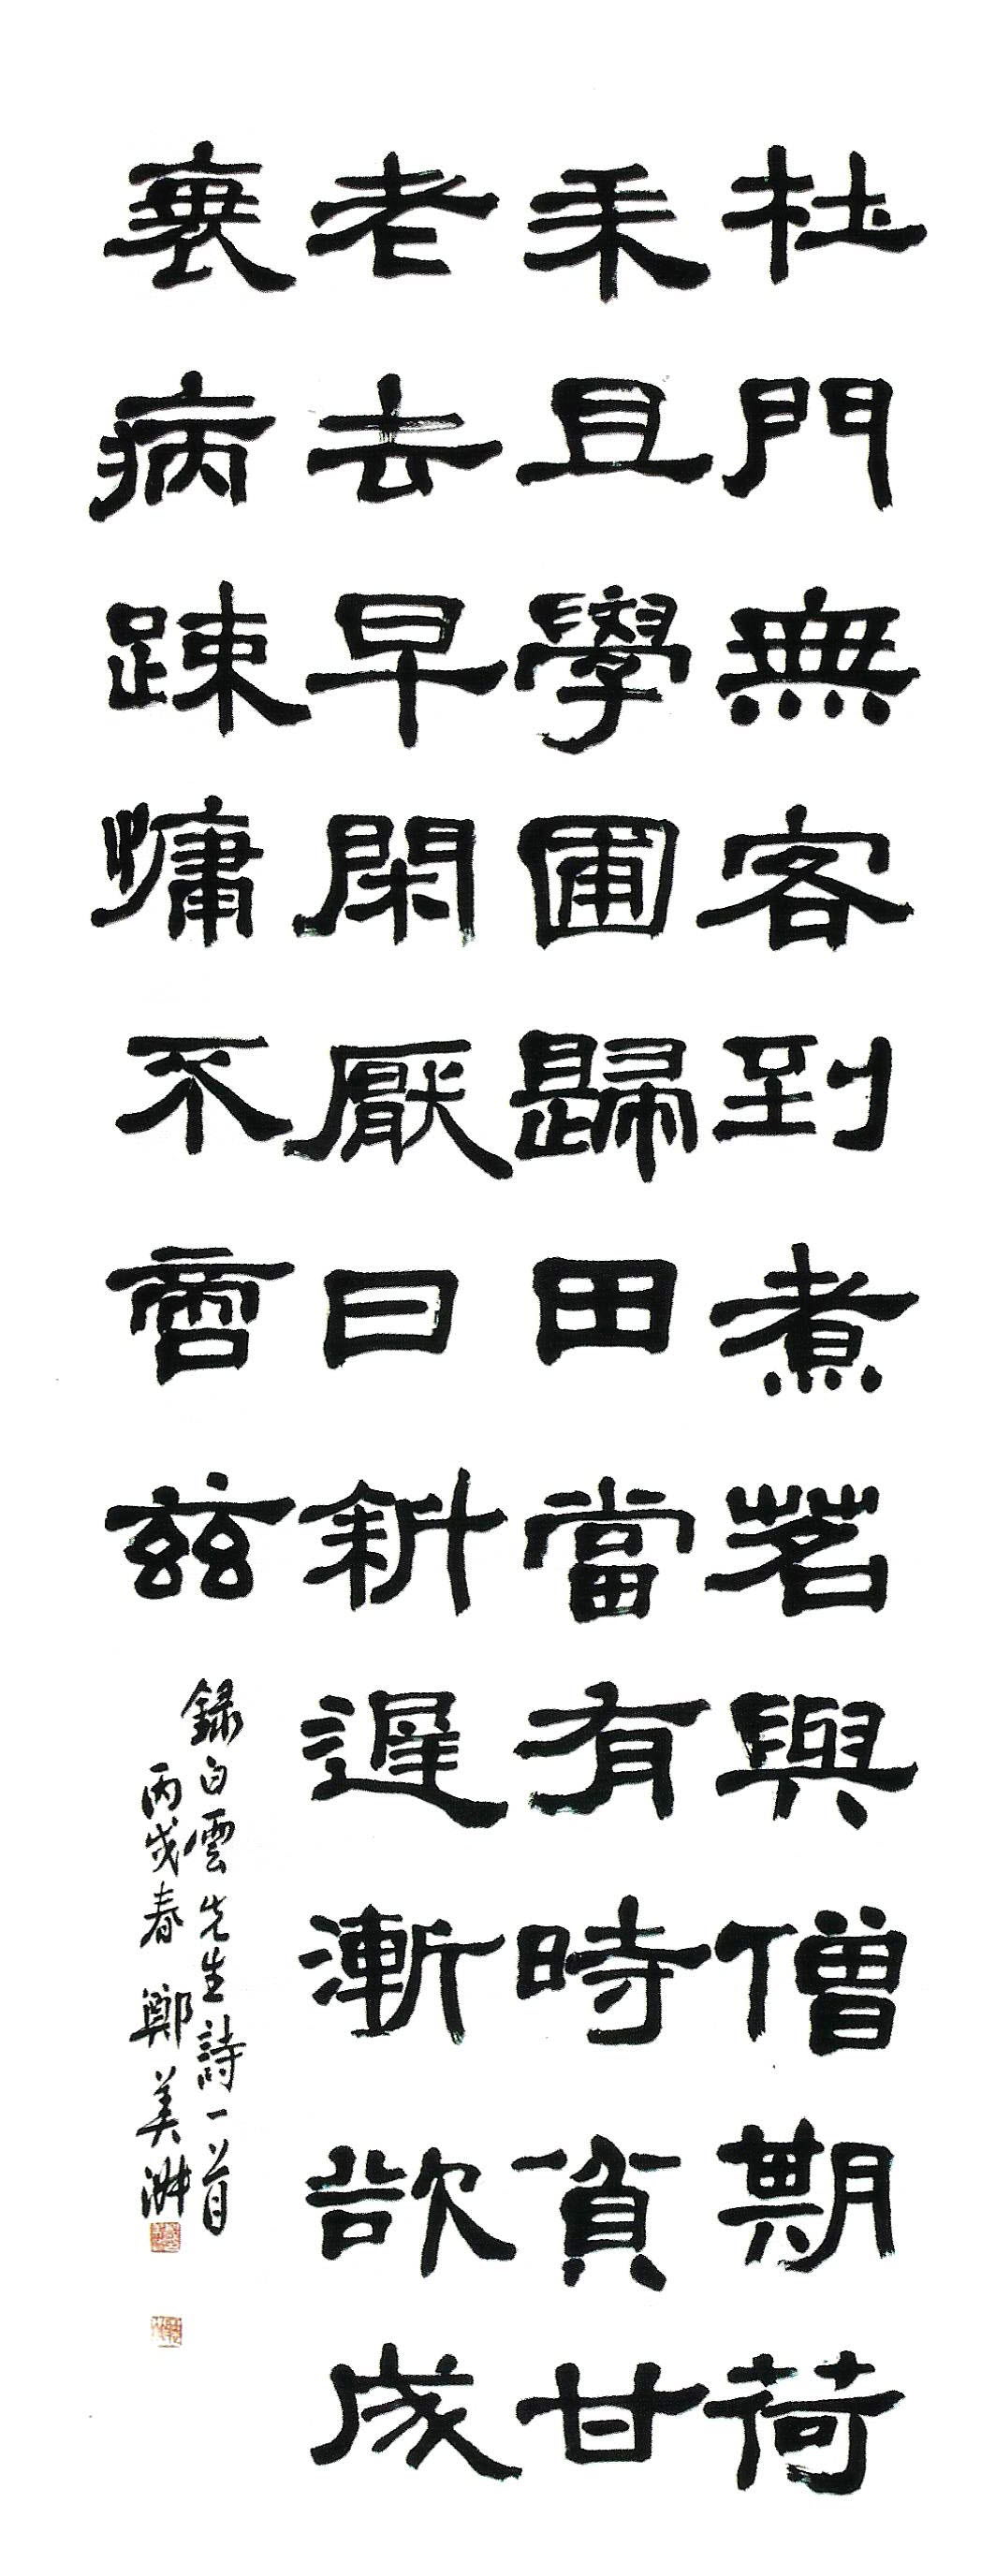 杜門無客到煮茗與僧期荷
耒且學圃歸田當有時貧甘
老去早閑厭日斜遲漸欲成
衰病疎慵不啻玆
錄白雲先生詩一首
丙戌春 鄭美